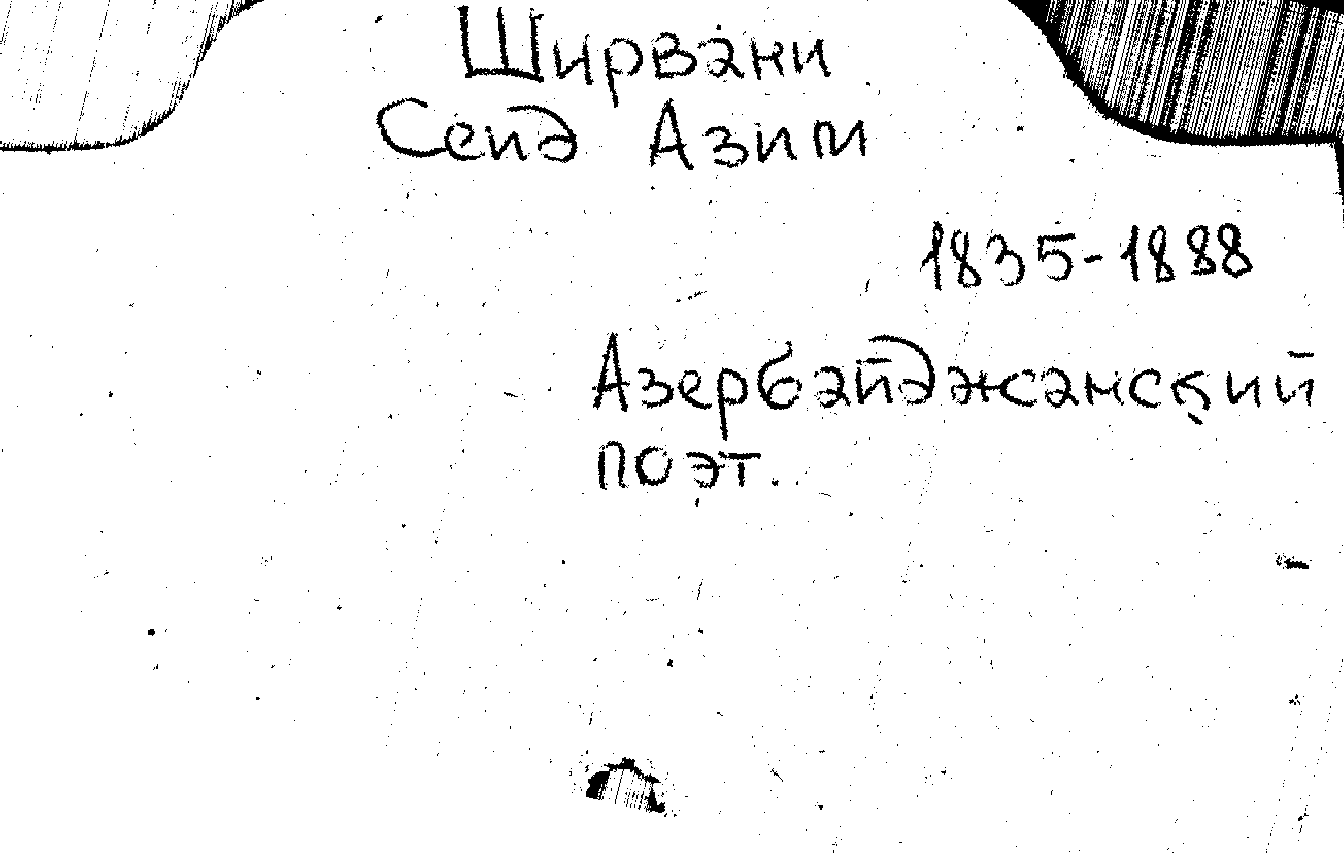 Ширвани
Сеид Азим
1835-1888
Азербайджанский
поэт.